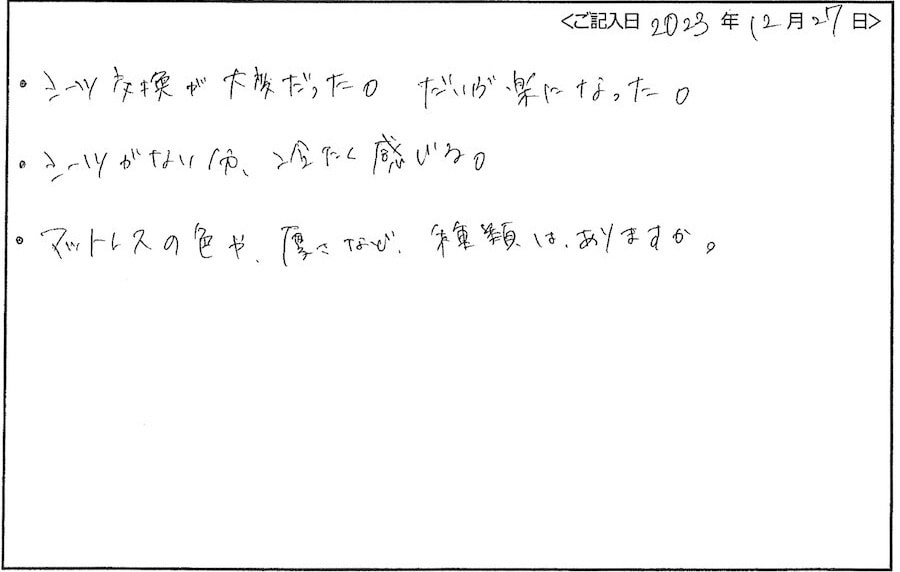 <ご記入日 2023 年 12 月 27 日>
・シーツ交換が大変だった。 だいぶ楽になった。
・シーツがない分、冷たく感じる。
・マットレスの色や、厚さなど、種類は、ありますか。